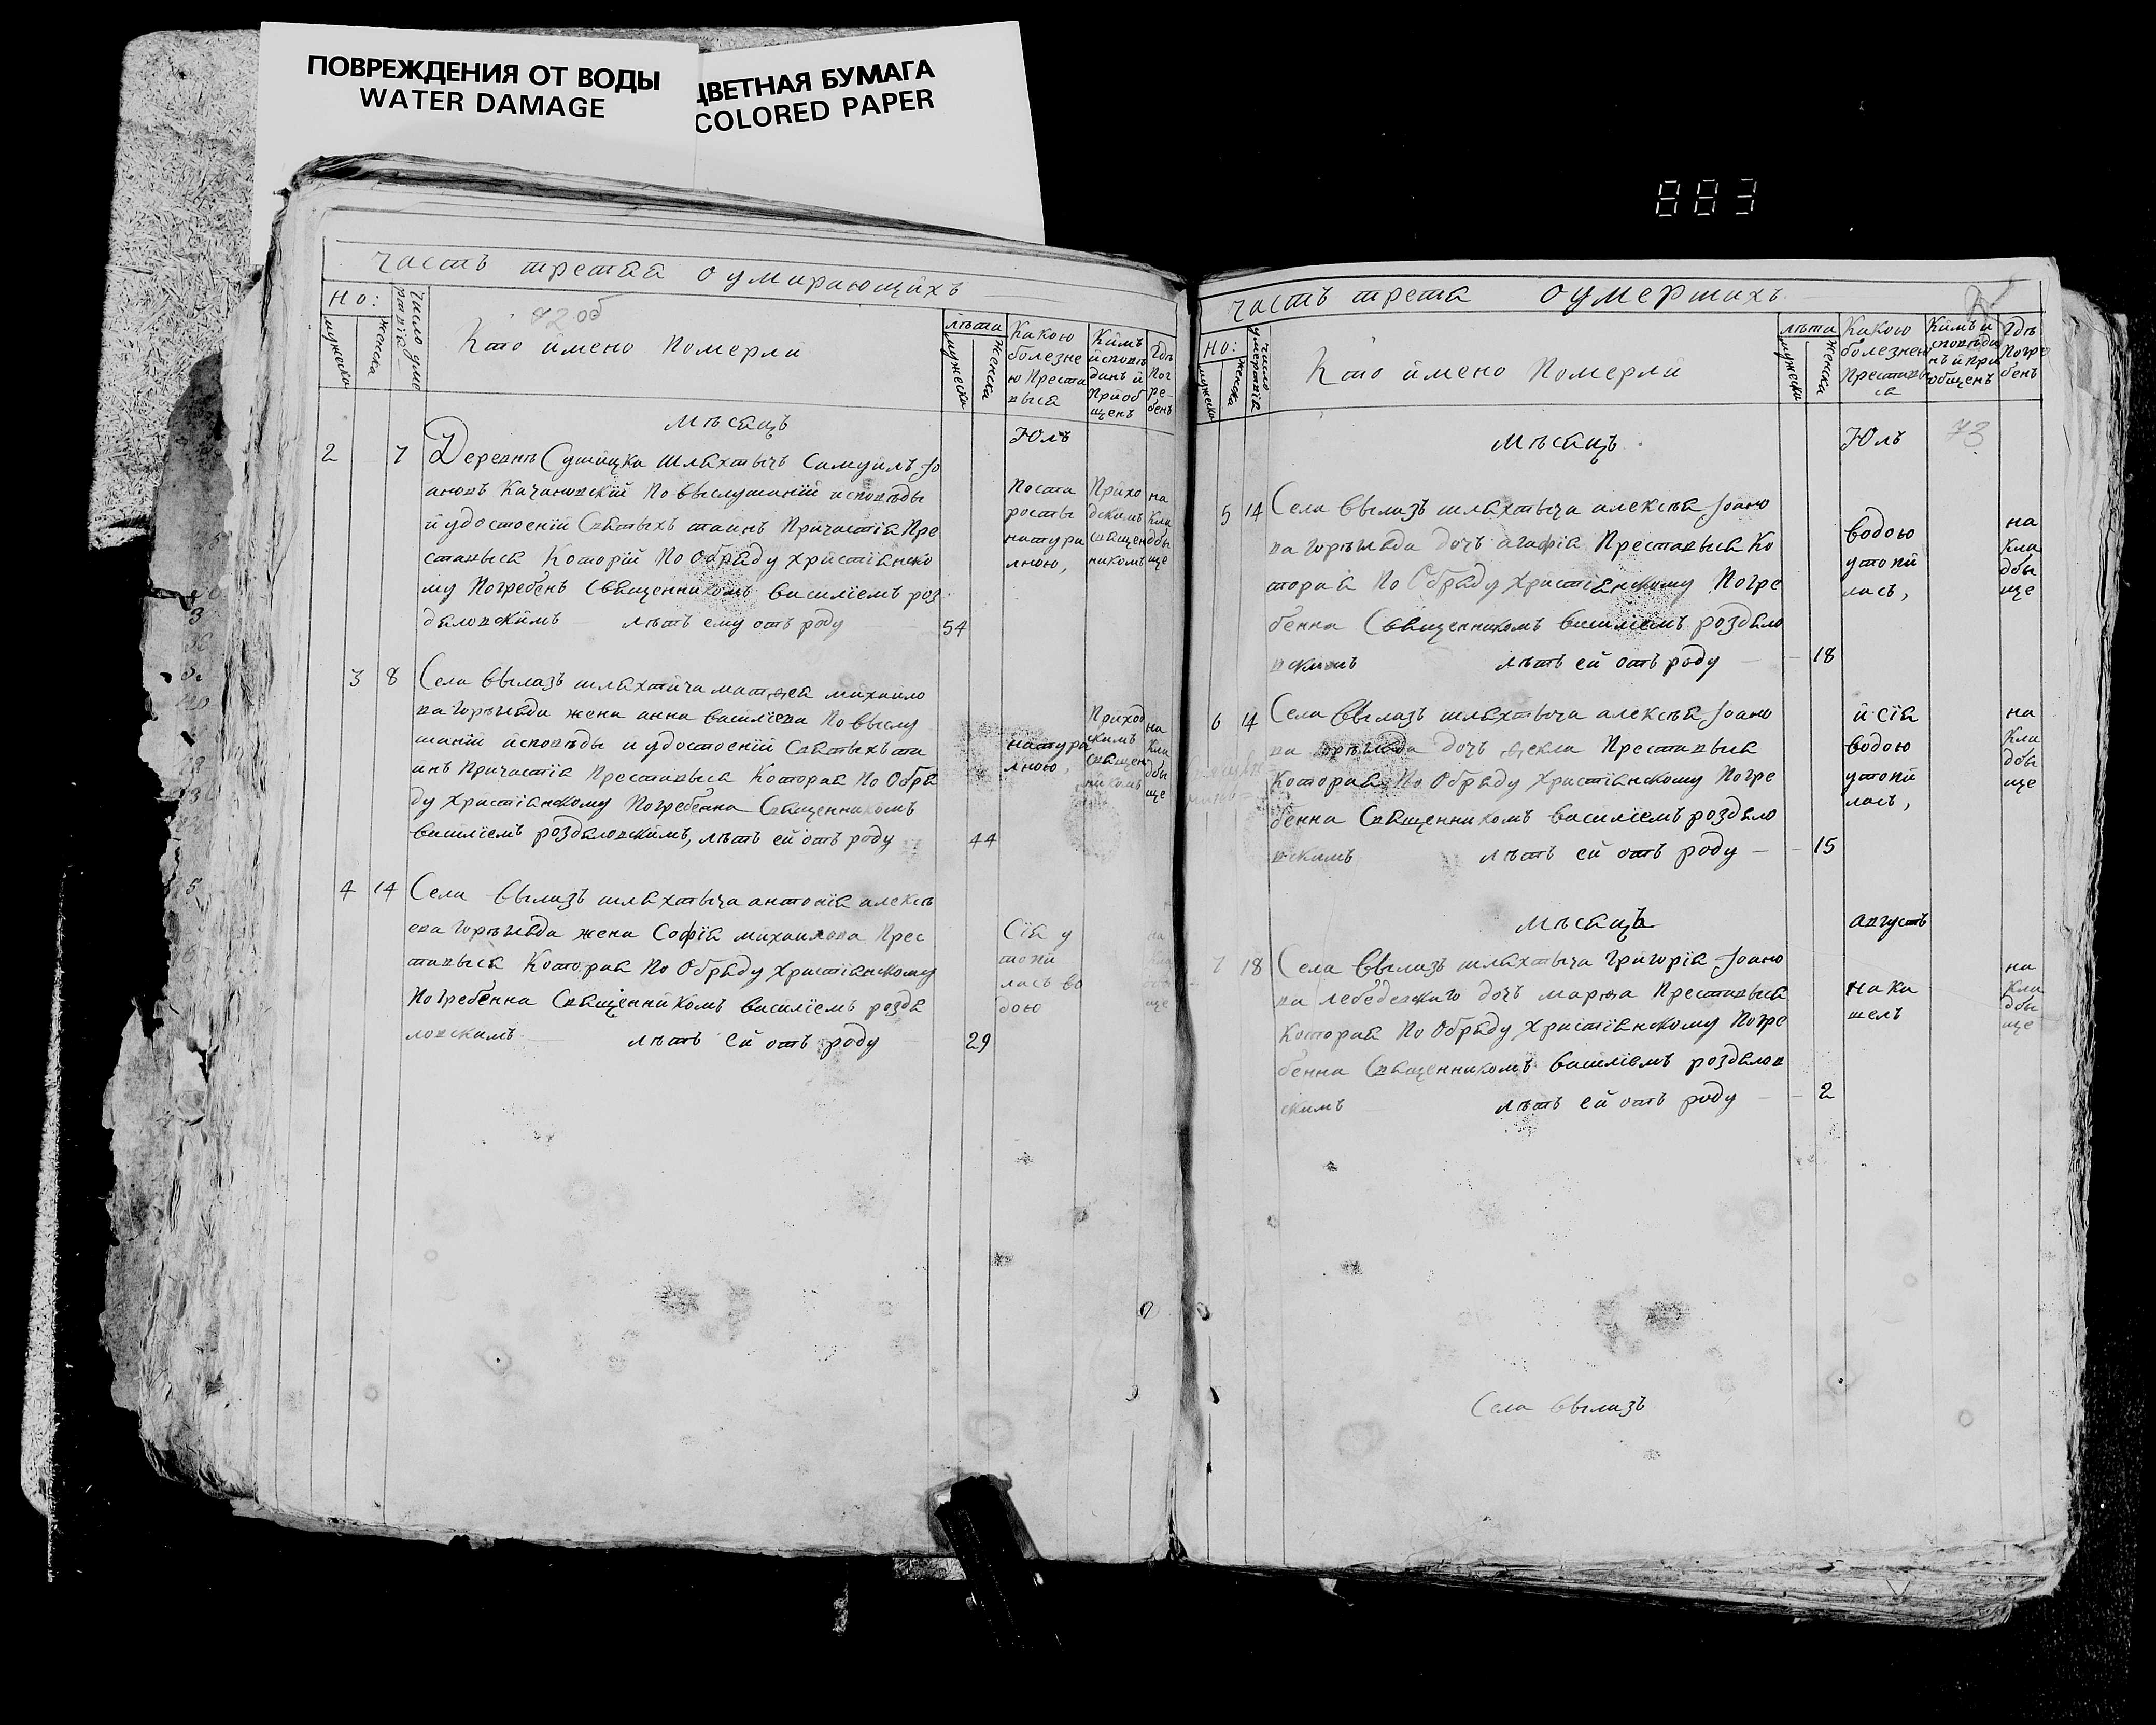 ПОВРЕЖДЕНИЯ ОТ ВОДЫ
WATER DAMAGE
ЦВЕТНАЯ БУМАГА
COLORED PAPER
883
часть третая о умирающихъ
72 об
Но:
мужеска
женска
Число уме
ртвія
Кто имено Померли
лѣта
мужеска
женска
Какою
болезне
ю Преста
выся
Кимъ
исповѣ
данъ и
приоб
щенъ
Гдѣ
Пог
ре
бенъ
Мѣсяцъ
Юль
2
7
Деревнѣ Сушицка шляхтычъ Самуилъ Іо
ановъ Качановскій По выслушаніи исповѣды
и удостоеніи Святыхъ таинъ Причастія Пре
ставыся Которій По Обряду Христіанско
му Погребенъ Священникомъ василіемъ роз
дяловскимъ лѣтъ ему отъ роду
54
Поста
росты
натура
лною,
Прихо
дскимъ
священ
никомъ
на
кла
дбы
ще
3
8
Села Вылазъ шляхтича матѳея михаило
ва горѣгляда жена анна василіева По выслу
шаніи исповѣды и удостоеніи Святыхъ та
инъ Причастія Преставыся Которая По Обря
ду Христіанскому Погребенна Священникомъ
василіемъ роздяловскимъ, лѣтъ ей отъ роду
44
натура
лною,
Приход
скимъ
священ
никомъ
на
кла
дбы
ще
4
14
Села Вылазъ шляхтыча антонія алексѣ
ева горѣгляда жена Софія михаилова Прес
тавыся Которая По Обряду Христіанскому
Погребенна Священникомъ василіемъ роздя
ловскимъ лѣтъ ей отъ роду
29
Сія у
топи
лась во
дою
на
ще
часть трета о умершихъ
Но:
мужеска
женска
число
умертвія
Кто имено Померли
лѣта
мужеска
женска
Какою
болезнею
Преставы
ся
Кимъ и
сповѣда
нъ и при
общенъ
Гдѣ
Погре
бенъ
Мѣсяцъ
Юль
73
5
14
Села Вылазъ шляхтыча алексѣя Іоано
ва горѣгляда дочъ агафія Преставыся Ко
торая По Обряду Христіанскому Погре
бенна Священникомъ василіемъ роздяло
вскимъ лѣтъ ей отъ роду
18
водою
утопи
лась,
на
кла
дбы
ще
6
14
Села Вылазъ шляхтыча алексѣя Іоано
ва горѣгляда дочъ ѳекла Преставыся
Которая По Обряду Христіанскому Погре
бенна Священникомъ василіемъ роздяло
вскимъ лѣтъ ей отъ роду
15
и сія
водою
утопи
лась,
на
кла
дбы
ще
Мѣсяцъ
августъ
7
18
Села Вылазъ шляхтыча григорія Іоано
ва лебедевскаго дочъ марѳа Преставыся
Которая По Обряду Христіанскому Погре
бенна Священникомъ василіемъ роздялов
скимъ лѣтъ ей отъ роду
2
на ка
шель
на
кла
дбы
ще
Села Вылазъ